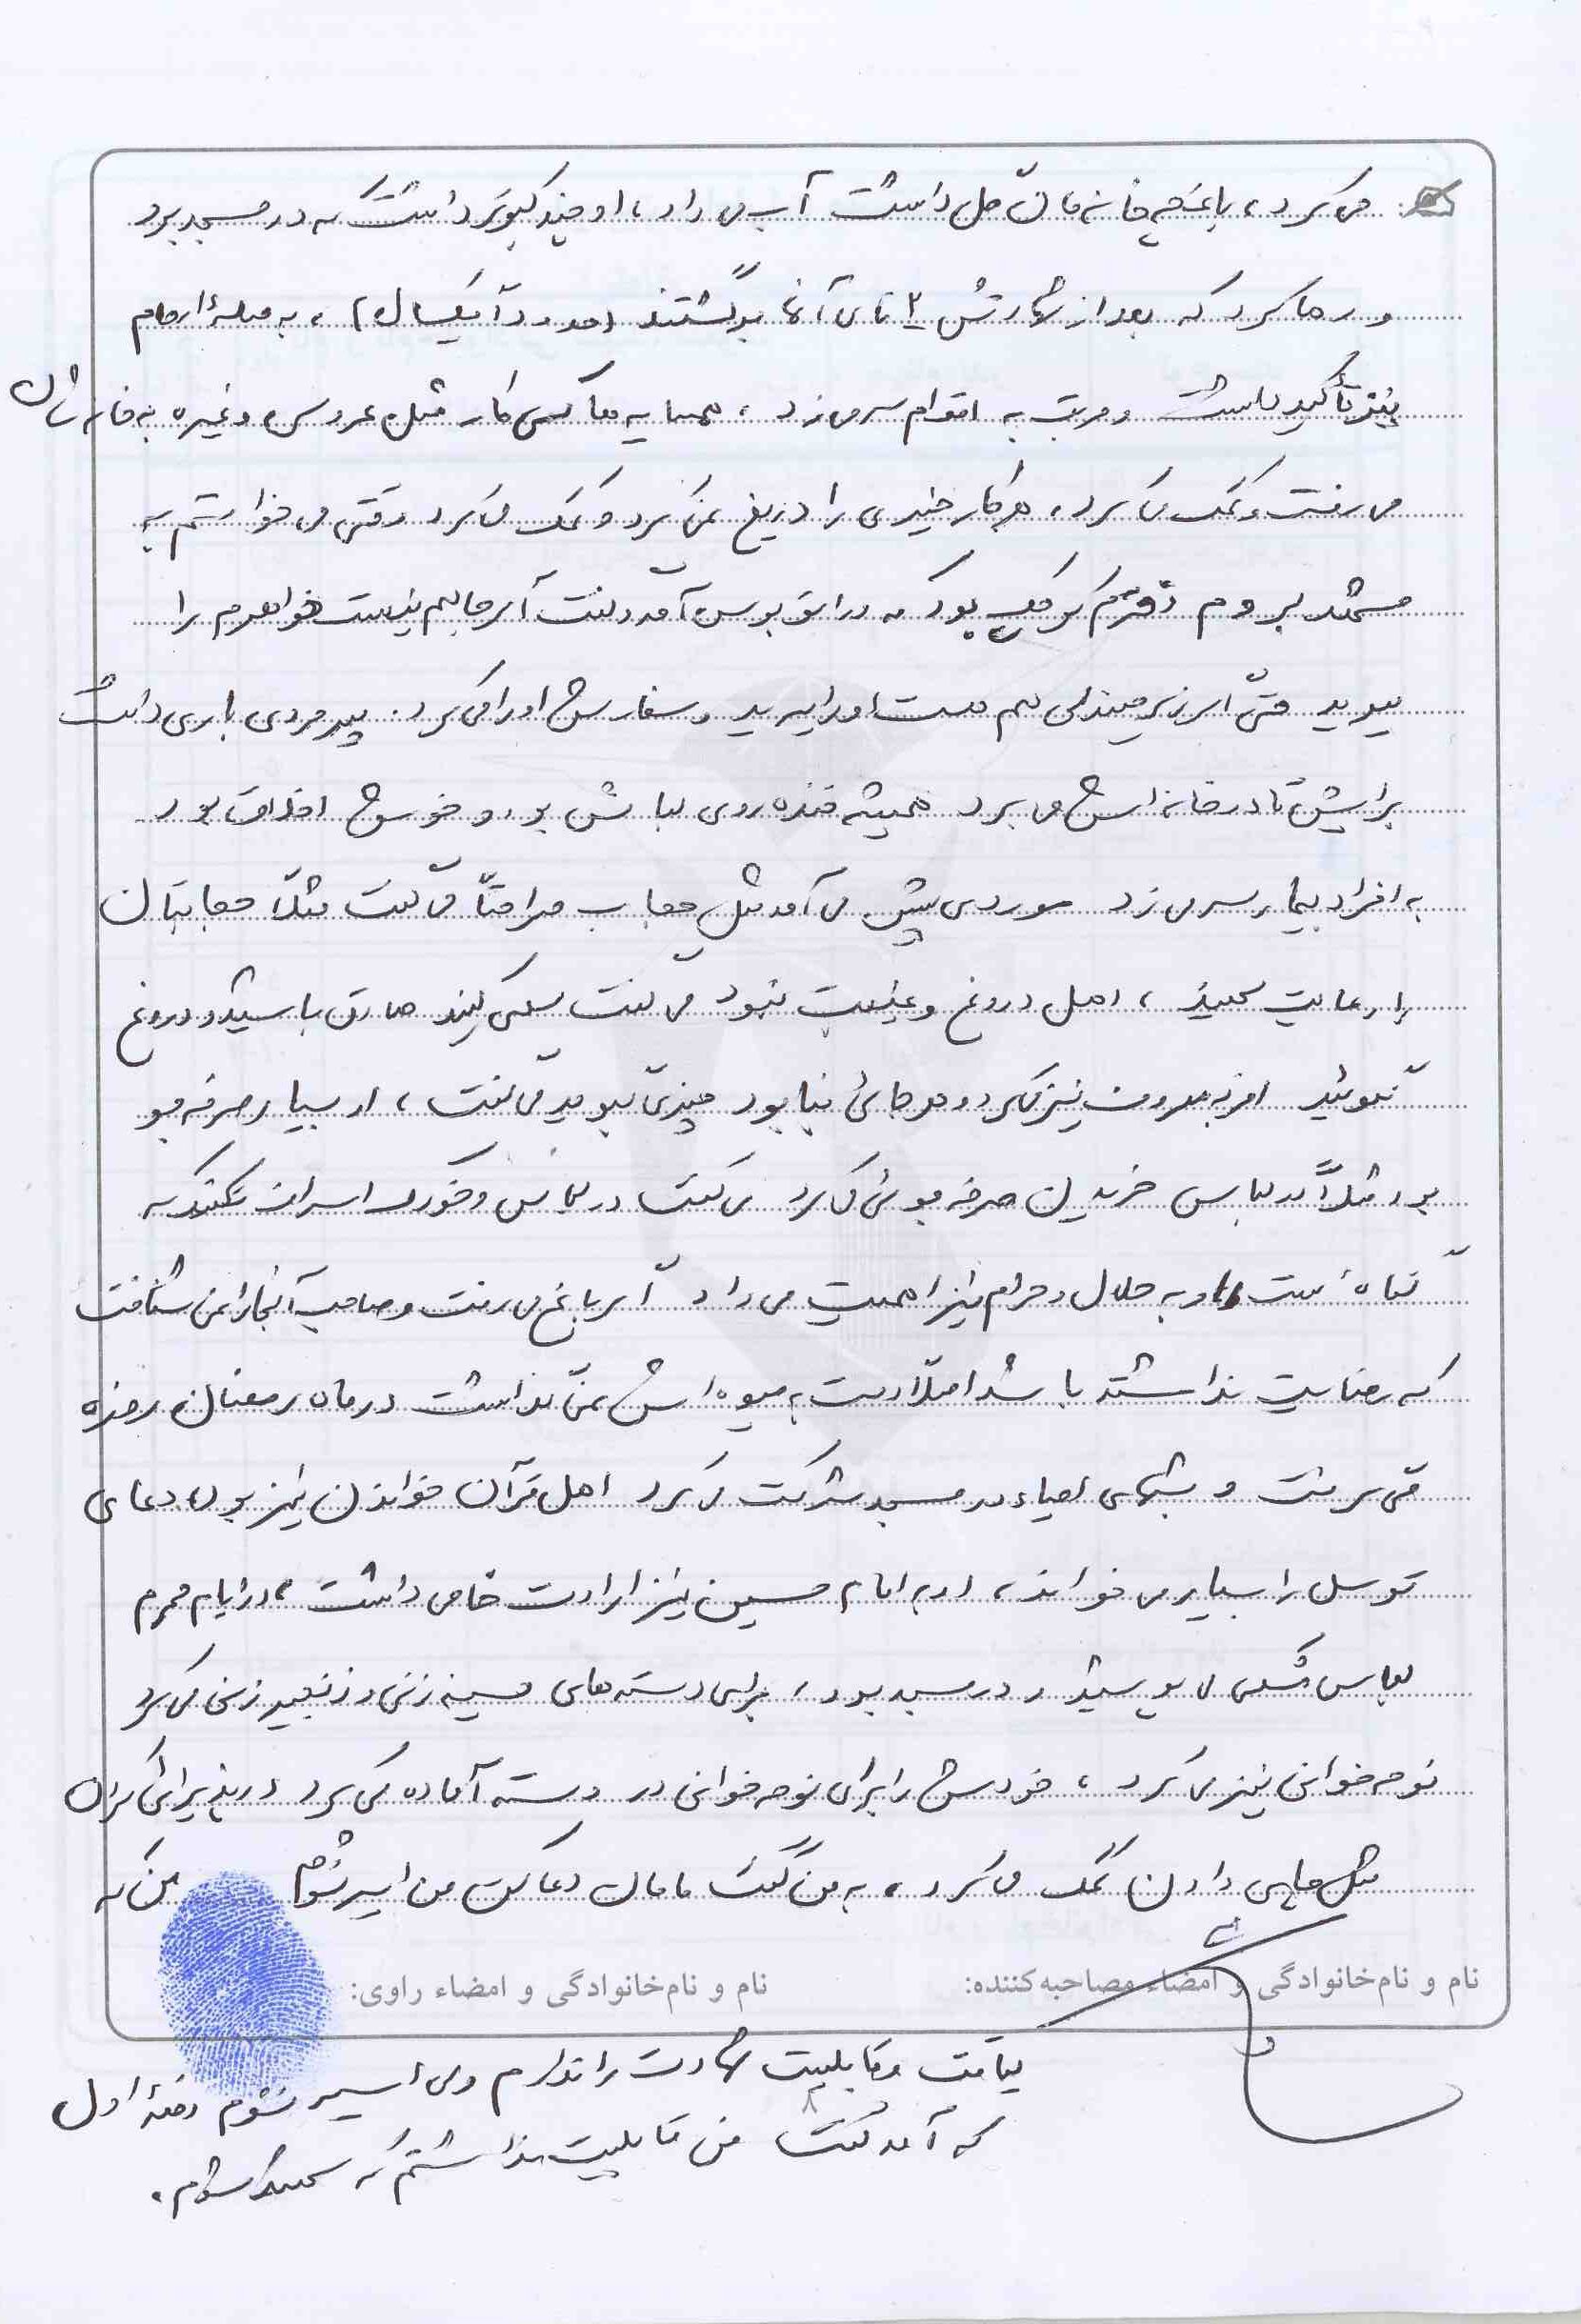 می کرد، باغچه خانه مان گل داشت آب می داد، او چند کبوتر داشت که در مسجد برد
و رها کرد که بعد از شهادتش ۲ تای آنها برگشتند (حدوداً یکسال)، به صلهٔ ارحام
نیز تأکید داشت و مرتب به اقوام سر می زد، همسایه ها کسی کار مثل عروسی و غیره به خانه شان
می رفت و کمک می کرد، هر کار خیری را دریغ نمی کرد و کمک می کرد وقتی می خواستم به
مشهد بروم دخترم کوچک بود که در اتوبوس آمد و گفت اگر جا هم نیست خواهرم را
ببرید حتی اگر زیر صندلی هم هست او را ببرید و سفارش او را می کرد. پیرمردی باری داشت
برایش تا در خانه اش می برد همیشه خنده روی لبانش بود و خوش اخلاق بود
به افراد بیمار سر می زد موردی پیش می آمد مثل حجاب صراحتاً می گفت مثلاً حجابتان
را رعایت کنید، اهل دروغ و غیبت نبود می گفت سعی کنید صادق باشید و دروغ
نگوئید امر به معروف نیز می کرد و هر جائی بنا بود چیزی بگوید می گفت، او بسیار صرفه جو
بود مثلاً در لباس خریدن صرفه جوئی می کرد می گفت در لباس و خوراک اسراف نکنید که
گناه است او به حلال و حرام نیز اهمیت می داد اگر باغ می رفت و صاحب آنجا را نمی شناخت
که رضایت نداشته باشد اصلاً دست به میوه اش نمی گذاشت در ماه رمضان روزه
می گرفت و شبهای احیاء در مسجد شرکت می کرد اهل قرآن خواندن نیز بود، دعای
توسل را بسیار می خواند، او به امام حسین نیز ارادت خاصی داشت، در ایام محرم
لباس مشکی می پوشید و در مسجد بود، برای دسته های سینه زنی و زنجیر زنی می کرد
نوحه خوانی نیز می کرد، خودش را برای نوحه خوانی در دسته آماده می کرد در پذیرائی کردن
مثل چایی دادن کمک می کرد، به من گفت مامان دعا کن من اسیر نشوم من که
نام و نام خانوادگی و امضاء مصاحبه کننده: نام و نام خانوادگی و امضاء راوی:
لیاقت و قابلیت شهادت را ندارم ولی اسیر نشوم دفعهٔ اول
که آمد گفت من قابلیت نداشتم که شهید شوم.